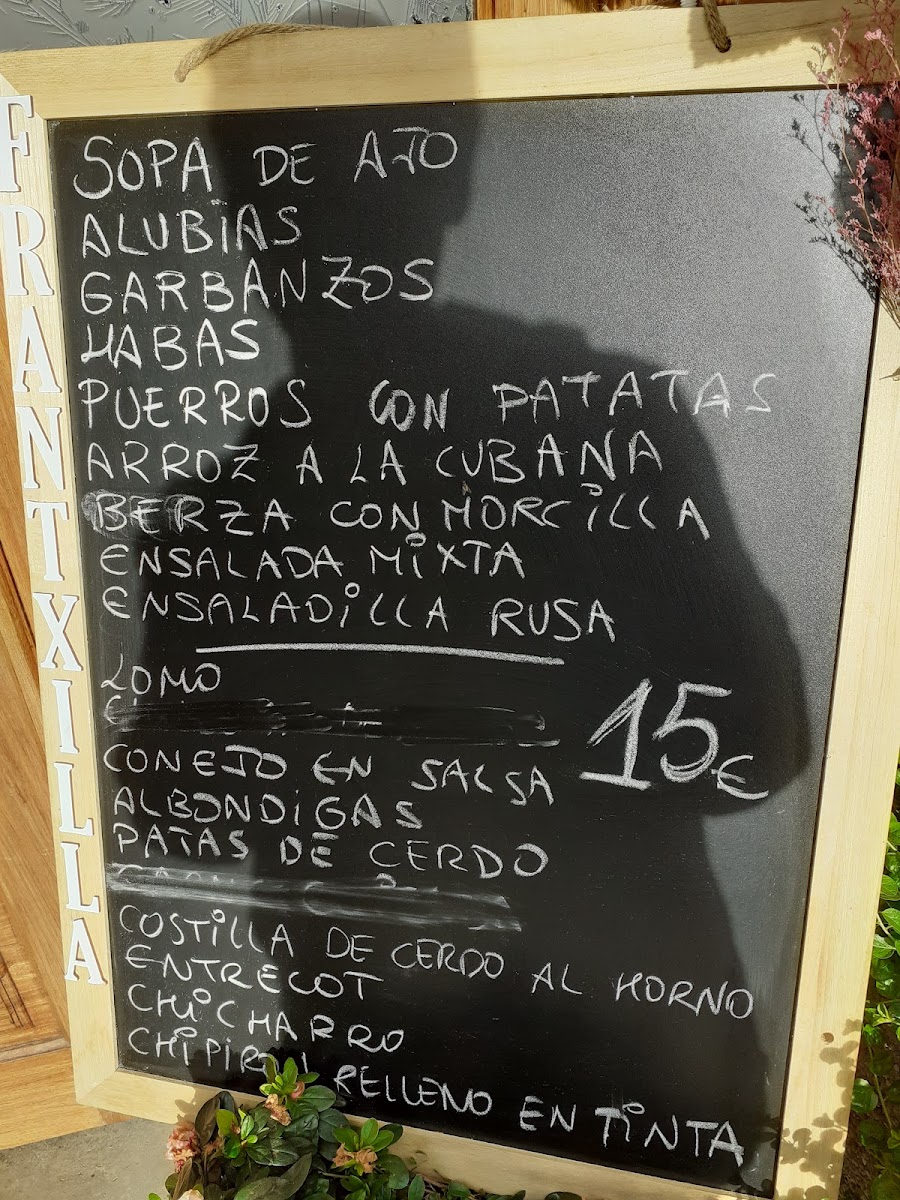 FRANTXILLA
SOPA DE AJO
ALUBIAS
GARBANZOS
HABAS
PUERROS CON PATATAS
ARROZ A LA CUBANA
BERZA CON MORCILLA
ENSALADA MIXTA
ENSALADILLA RUSA
LOMO
15€
CONEJO EN SALSA
ALBONDIGAS
PATAS DE CERDO
COSTILLA DE CERDO AL HORNO
ENTRECOT
CHICHARRO
CHIPIRON RELLENO EN TINTA